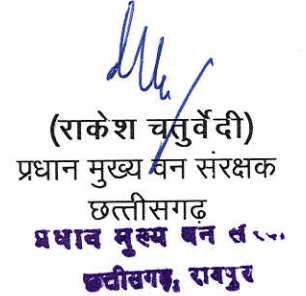 (राकेश चतुर्वेदी)
प्रधान मुख्य वन संरक्षक
छत्तीसगढ़
प्रधान मुख्य वन
छत्तीसगढ़, रायपुर